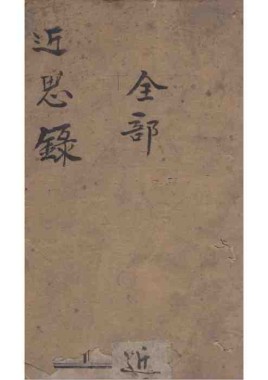 近思錄
全部
近